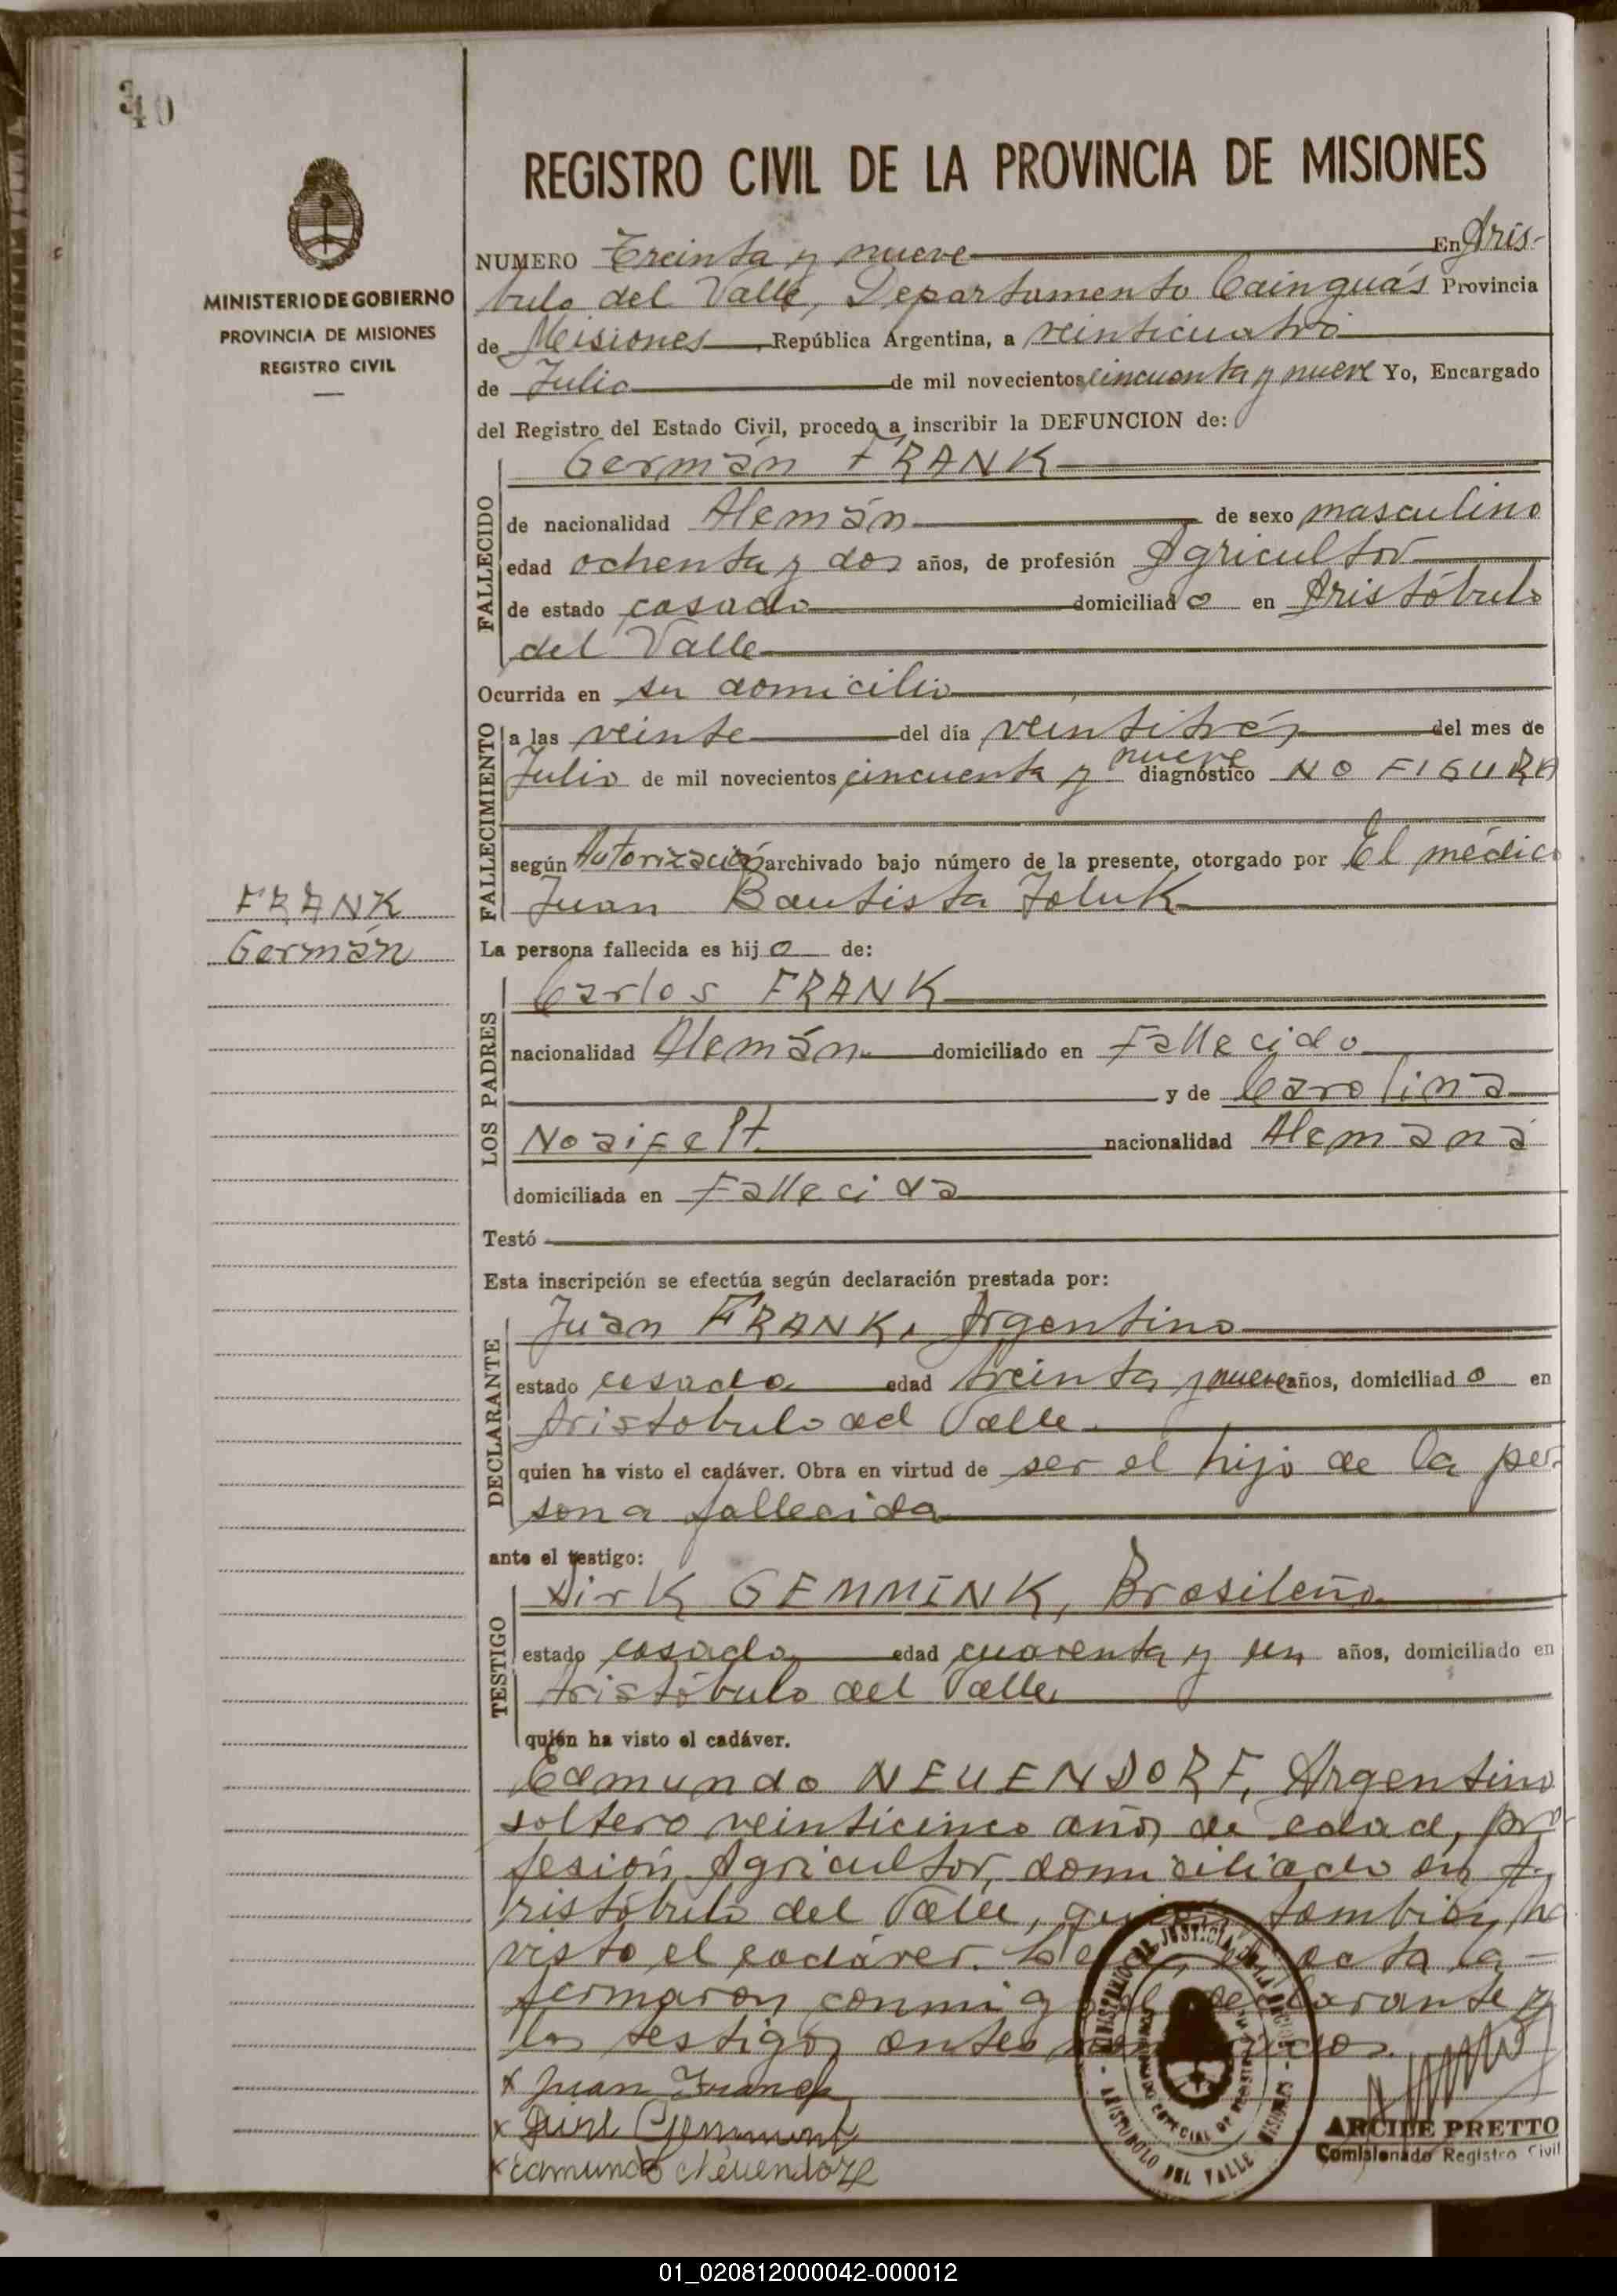 340
REGISTRO CIVIL DE LA PROVINCIA DE MISIONES
MINISTERIO DE GOBIERNO
PROVINCIA DE MISIONES
REGISTRO CIVIL
NUMERO Treinta y nueve En Aris-
bulo del Valle, Departamento Cainguás Provincia
de Misiones, República Argentina, a veinticuatro
de Julio de mil novecientos cincuenta y nueve Yo, Encargado
del Registro del Estado Civil, procedo a inscribir la DEFUNCION de:
Germán FRANK
FALLECIDO
de nacionalidad Alemán de sexo masculino
edad ochenta y dos años, de profesión Agricultor
de estado casado domiciliado en Aristóbulo
del Valle
Ocurrida en su domicilio
FALLECIMIENTO
a las veinte del día veintitrés del mes de
Julio de mil novecientos cincuenta y nueve diagnóstico NO FIGURA
según Autorización archivado bajo número de la presente, otorgado por El médico
Juan Bautista
FRANK
Germán
La persona fallecida es hijo de:
LOS PADRES
Carlos FRANK
nacionalidad Alemán domiciliado en Fallecido
y de Carolina
Noaifelt nacionalidad Alemana
domiciliada en Fallecida
Testó
Esta inscripción se efectúa según declaración prestada por:
DECLARANTE
Juan FRANK, Argentino
estado casado edad treinta y nueve años, domiciliado en
Aristobulo del Valle.
quien ha visto el cadáver. Obra en virtud de ser el hijo de la per-
sona fallecida
ante el testigo:
TESTIGO
Dirk GEMMINK, Brasileño
estado casado edad cuarenta y un años, domiciliado en
Aristóbulo del Valle
quién ha visto el cadáver.
Edmundo NEUENDORF, Argentino
soltero veinticinco años de edad, pro
fesión Agricultor, domiciliado en A-
ristóbulo del Valle, quien también ha
visto el cadáver. acta la
firmaron conmigo el declarante y
los testigos
x Juan Frank
x Dirk Gemmink
x Edmundo Neuendorf
ARISTOBULO DEL VALLE MISIONES
ARCIDE PRETTO
Comisionado Registro Civil
01_020812000042-000012